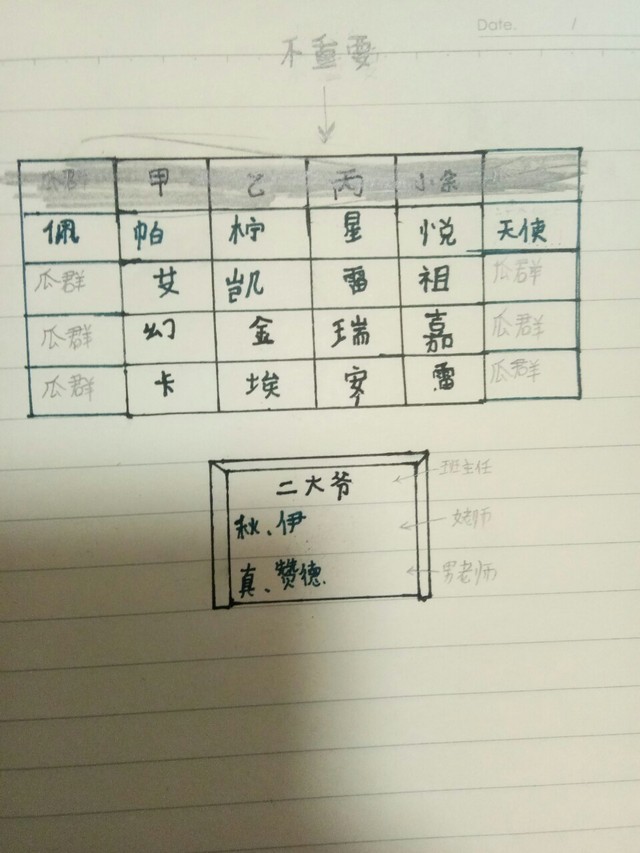 Date. /
不重要
瓜群 甲 乙 丙 小余
佩 帕 柠 星 悦 天使
瓜群 艾 凯 雷 祖 瓜群
瓜群 幻 金 瑞 嘉 瓜群
瓜群 卡 埃 安 雷 瓜群
二大爷 班主任
秋、伊 姥师
真、赞德 男老师